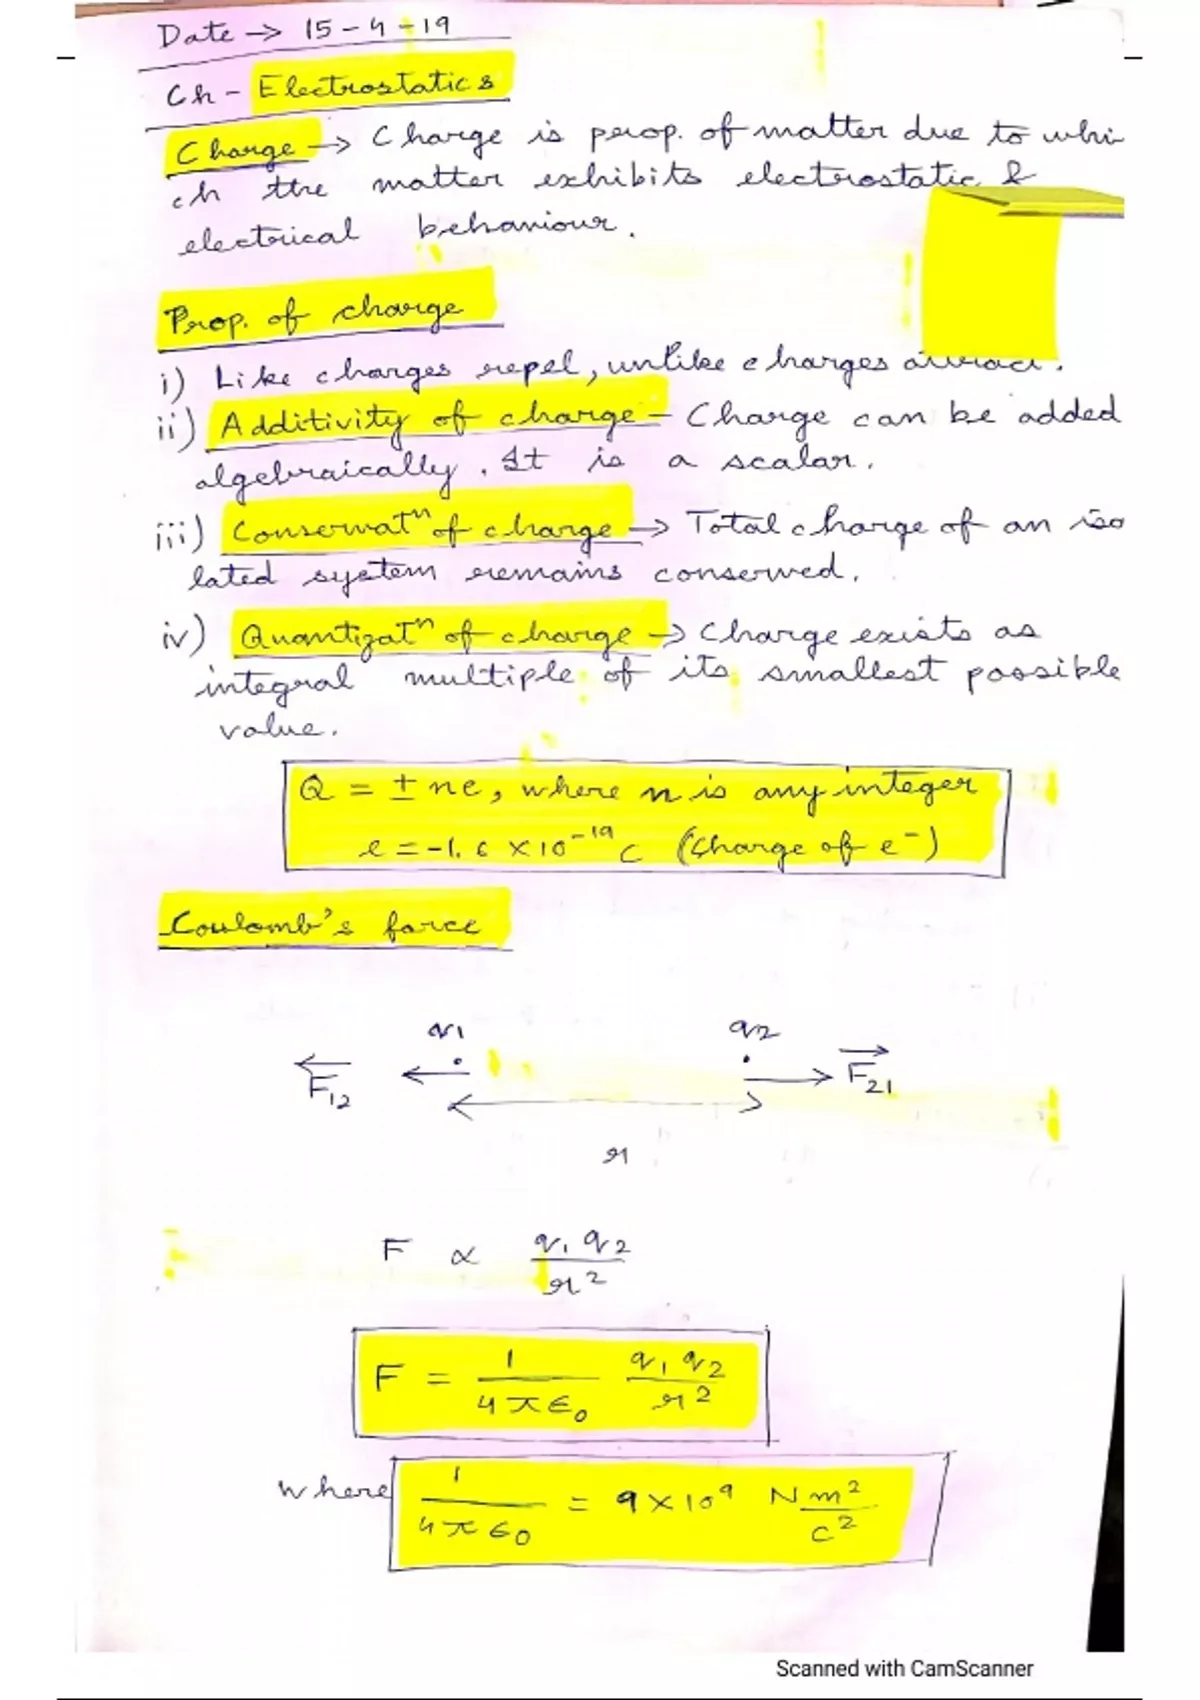 Date → 15-4-19
Ch - Electrostatics
Charge → Charge is prop. of matter due to whi
ch the matter exhibits electrostatic &
electrical behaviour.
Prop. of charge
i) Like charges repel, unlike charges attract.
ii) Additivity of charge - Charge can be added
algebraically. It is a scalar.
iii) Conservatⁿ of charge → Total charge of an iso
lated system remains conserved.
iv) Quantizatⁿ of charge → Charge exists as
integral multiple of its smallest possible
value.
Q = ± ne, where n is any integer
e = -1.6 × 10⁻¹⁹ C (Charge of e⁻)
Coulomb's force
q₁ q₂
F₁₂ F₂₁
r
F ∝ q₁ q₂ / r²
F = 1 / 4πϵ₀ q₁ q₂ / r²
where 1 / 4πϵ₀ = 9 × 10⁹ N m² / c²
Scanned with CamScanner